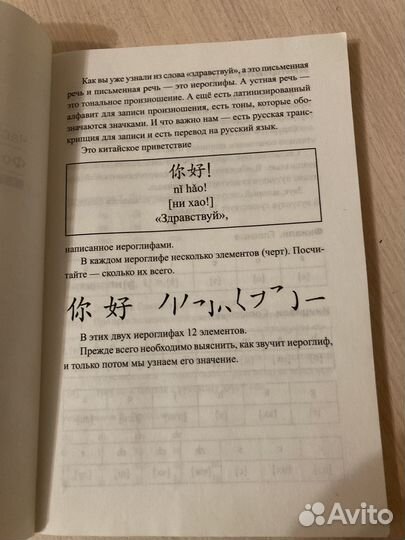 Как вы уже узнали из слова «здравствуй», а это письменная
речь и письменная речь — это иероглифы. А устная речь —
это тональное произношение. А ещё есть латинизированный
алфавит для записи произношения, есть тоны, которые обо-
значаются значками. И что важно — есть русская транс-
крипция для записи и есть перевод на русский язык.
Это китайское приветствие
你好!
nǐ hǎo!
[ни хао!]
«Здравствуй»,
написанное иероглифами.
В каждом иероглифе несколько элементов (черт). Посчи-
тайте — сколько их всего.
你 好
В этих двух иероглифах 12 элементов.
Прежде всего необходимо выяснить, как звучит иероглиф,
и только потом мы узнаем его значение.
Avito